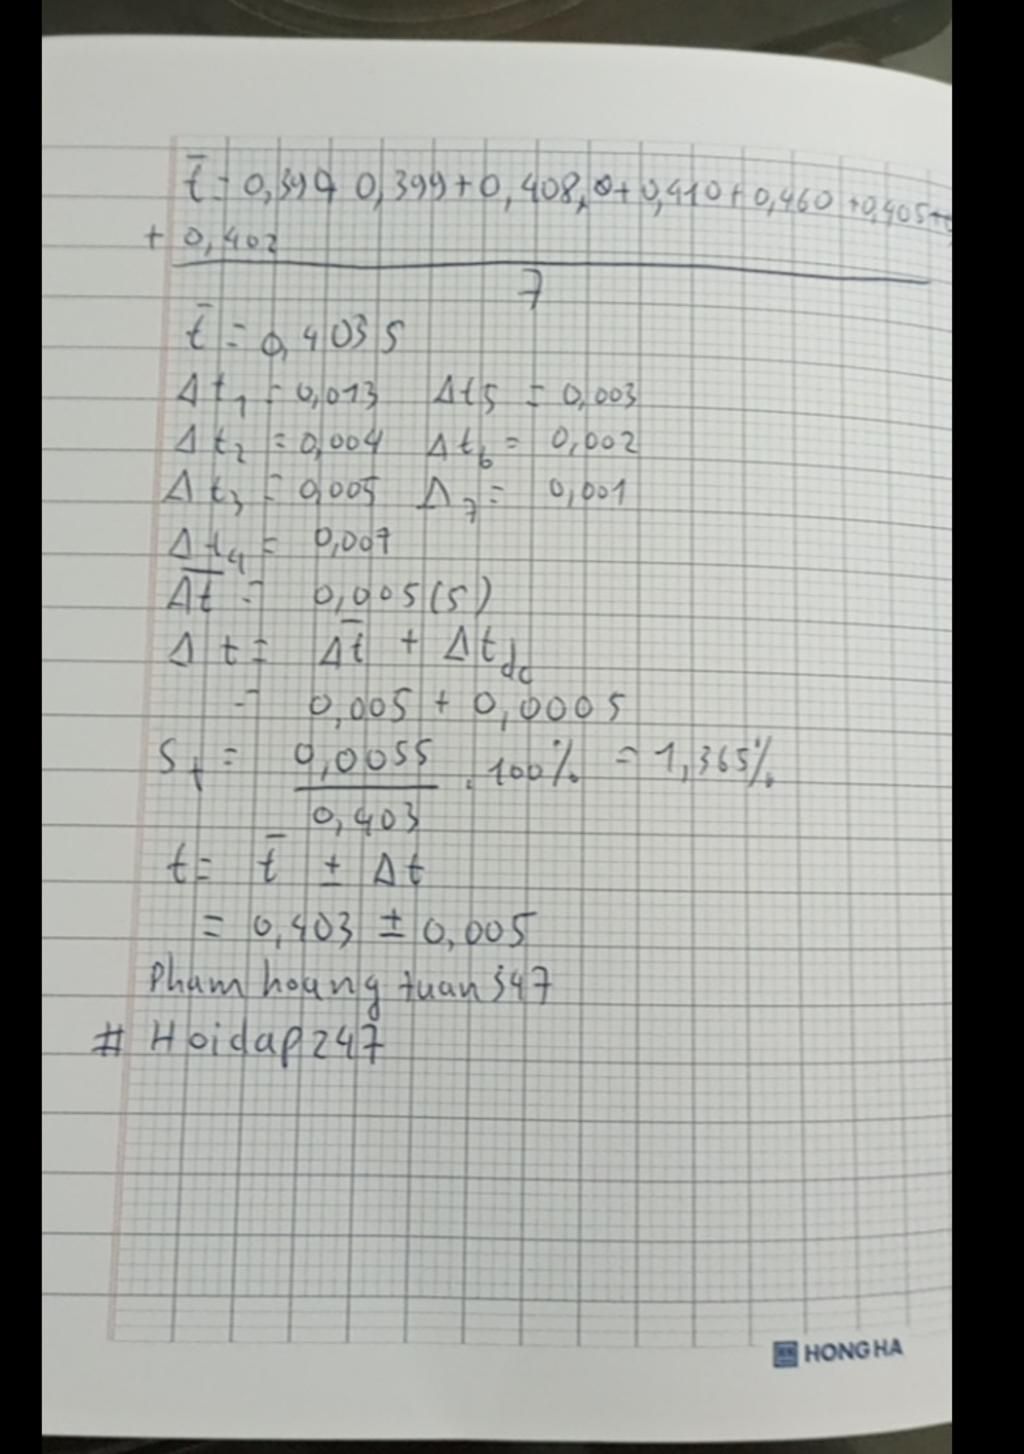 t̄ = 0,399 0,399+0,408,0+0,410+0,460+0,405+
+ 0,402
7
t̄ = 0,403 s
Δt₁ = 0,013 Δt5 = 0,003
Δt₂ = 0,004 Δt₆ = 0,002
Δt₃ = 0,005 Δ₇ = 0,001
Δt₄ = 0,007
Δt̄ = 0,005(s)
Δt = Δt̄ + Δt dc
= 0,005 + 0,0005
S t = 0,0055 / 0,403 . 100% = 1,365%
t = t̄ ± Δt
= 0,403 ± 0,005
Pham hoang tuan 347
# Hoidap247
HONG HA